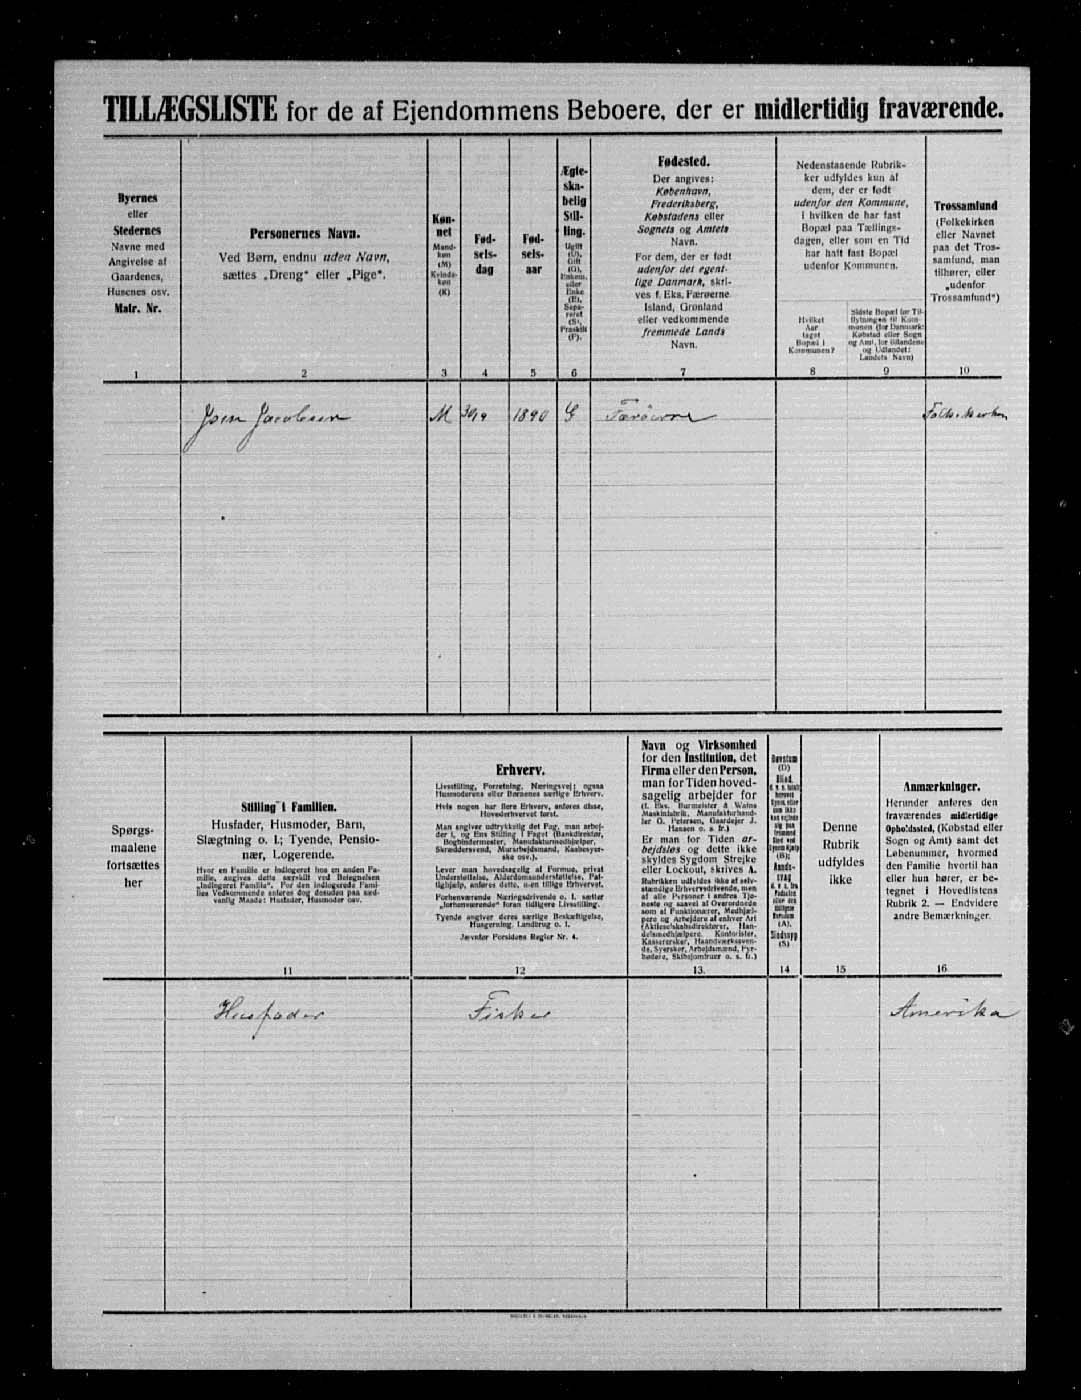 TILLÆGSLISTE for de af Ejendommens Beboere, der er midlertidig fraværende.
Byernes
eller
Stedernes
Navne med
Angivelse af
Gaardenes,
Husenes osv.
Matr. Nr.
1
Personernes Navn.
Ved Børn, endnu uden Navn,
sættes „Dreng“ eller „Pige“.
2
Køn-
net
Mand-
køn
(M)
Kvinde-
køn
(K)
3
Fød-
sels-
dag
4
Fød-
sels-
aar
5
Ægte-
ska-
belig
Stil-
ling.
Ugift
(U),
Gift
(G),
Enkem.
eller
Enke
(E),
Sepa-
reret
(S),
Fraskilt
(F).
6
Fødested.
Der angives:
København,
Frederiksberg,
Købstadens eller
Sognets og Amtets
Navn.
For dem, der er født
udenfor det egent-
lige Danmark, skri-
ves f. Eks. Færøerne
Island, Grønland
eller vedkommende
fremmede Lands
Navn.
7
Nedenstaaende Rubrik-
ker udfyldes kun af
dem, der er født
udenfor den Kommune,
i hvilken de har fast
Bopæl paa Tællings-
dagen, eller som en Tid
har haft fast Bopæl
udenfor Kommunen.
Hvilket
Aar
taget
Bopæl i
Kommunen?
8
Sidste Bopæl før Til-
flytningen til Kom-
munen (for Danmark:
Købstad eller Sogn
og Amt, for Bilandene
og Udlandet:
Landets Navn)
9
Trossamfund
(Folkekirken
eller Navnet
paa det Tros-
samfund, man
tilhører, eller
„udenfor
Trossamfund“)
10
Joen Jacobsen M 30/9 1890 G Færöerne
Spørgs-
maalene
fortsættes
her
Stilling i Familien.
Husfader, Husmoder, Barn,
Slægtning o. l.; Tyende, Pensio-
nær, Logerende.
Hvor en Familie er indlogeret hos en anden Fa-
milie, angives dette særskilt ved Betegnelsen
„Indlogeret Familie“. For den indlogerede Fami-
lies Vedkommende anføres dog desuden paa sæd-
vanlig Maade: Husfader, Husmoder osv.
11
Erhverv.
Livsstilling, Forretning, Næringsvej; ogsaa
Husmoderens eller Børnenes særlige Erhverv.
Hvis nogen har flere Erhverv, anføres disse,
Hovederhvervet først.
Man angiver udtrykkelig det Fag, man arbej-
der i, og Ens Stilling i Faget (Bankdirektør,
Bogbindermester, Manufakturmedhjælper,
Skræddersvend, Murarbejdsmand, Kasbesyer-
ske osv.).
Lever man hovedsagelig af Formue, privat
Understøttelse, Alderdomsunderstøttelse, Fat-
tighjælp, anføres dette, uden tillige Erhvervet.
Forhenværende Næringsdrivende o. l. sætter
„forhenværende“ foran tidligere Livsstilling.
Tyende angiver deres særlige Beskæftigelse,
Husgerning, Landbrug o. l.
Jævnfør Forsidens Regler Nr. 4.
12
Navn og Virksomhed
for den Institution, det
Firma eller den Person,
man for Tiden hoved-
sagelig arbejder for
(f. Eks. Burmeister & Wains
Maskinfabrik, Manufakturhand-
ler G. Petersen, Gaardejer J.
Hansen o. s. fr.)
Er man for Tiden ar-
bejdsløs og dette ikke
skyldes Sygdom Strejke
eller Lockout, skrives A.
Rubrikken udfyldes ikke af selv-
stændige Erhvervsdrivende, men
af alle Personer i andres Tje-
neste og saavel af Overordnede
som af Funktionærer, Medhjæl-
pere og Arbejdere af enhver Art
(Aktieselskabsdirektører, Han-
delsmedhjælpere, Kontorister,
Kassererske, Haandværkssven-
de, Syersker, Arbejdsmænd, Fyr-
bødere, Skibsjomfruer o. s. fr.)
13.
Døvstum
(D)
Blind,
(B);
(A),
Sindssyg
(S)
14
Denne
Rubrik
udfyldes
ikke
15
Anmærkninger.
Herunder anføres den
fraværendes midlertidige
Opholdssted, (Købstad eller
Sogn og Amt) samt det
Løbenummer, hvormed
den Familie hvortil han
eller hun hører, er be-
tegnet i Hovedlistens
Rubrik 2. — Endvidere
andre Bemærkninger.
16
Husfader Fisker Amerika